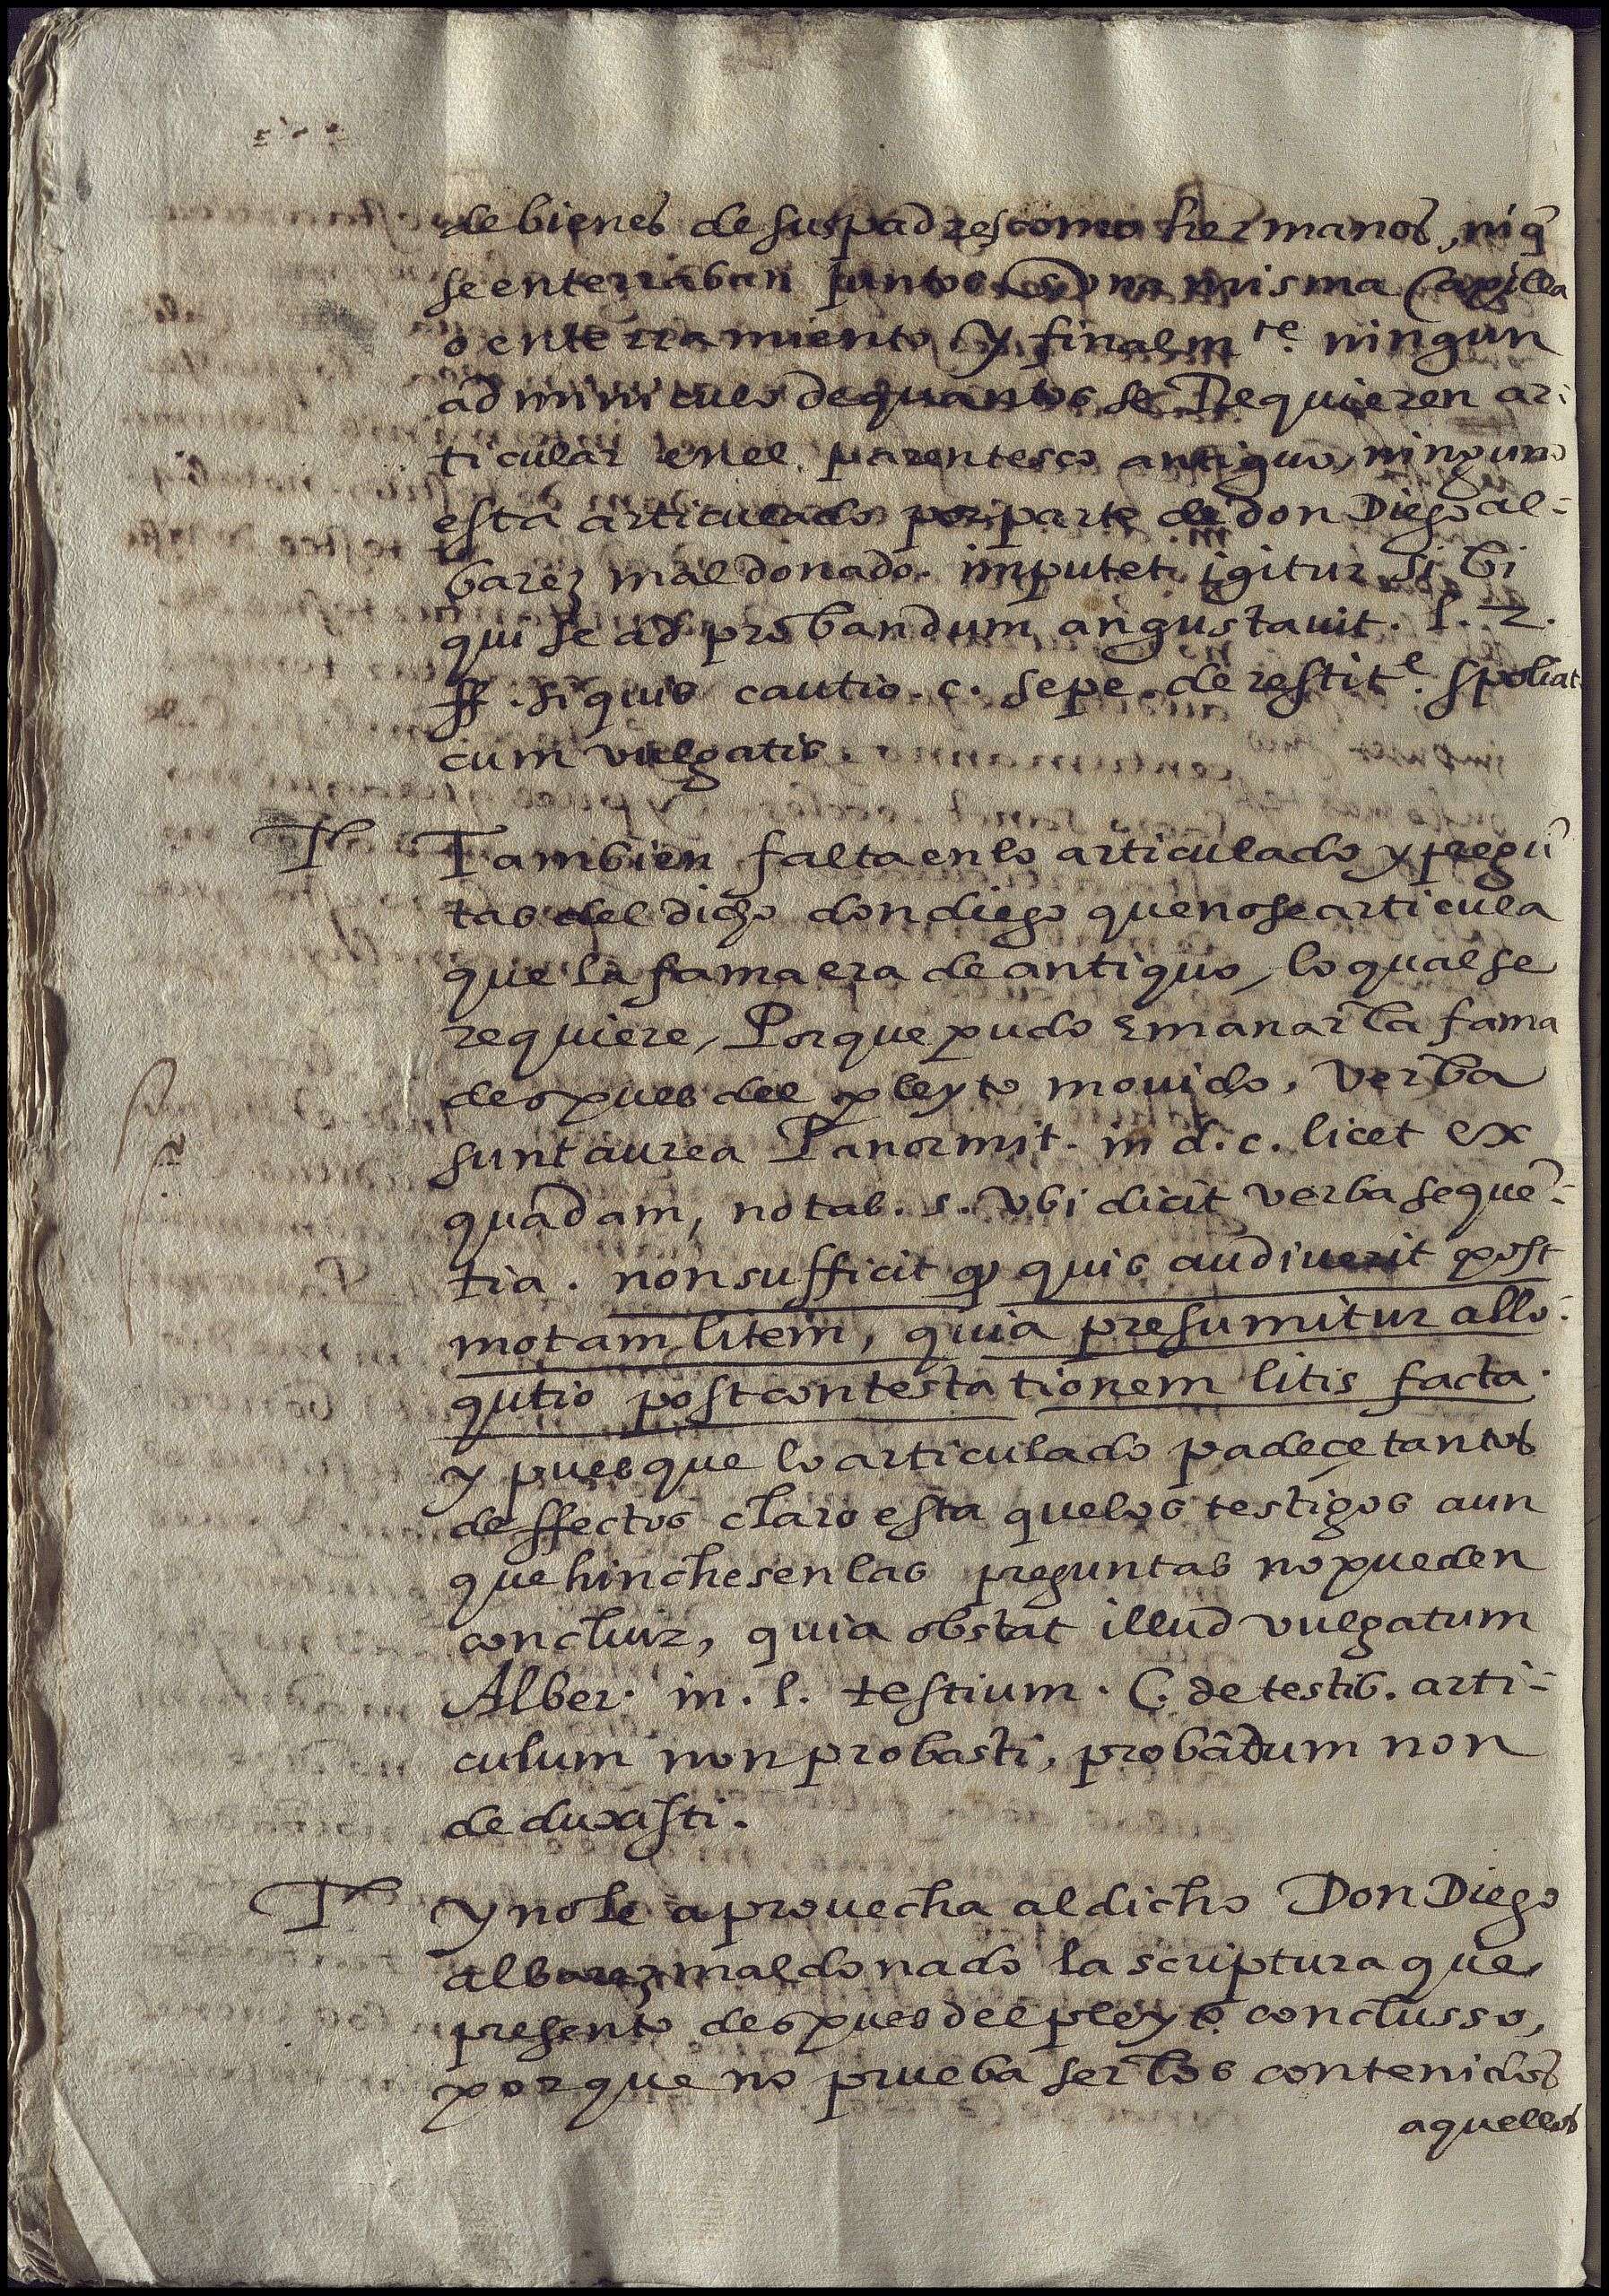 de bienes de sus padres como hermanos, ni q̃
se enterraban juntos en una misma Capilla
o enterramiento y finalmte. ningun
adminiculo de quantos se Requieren ar-
ticular en el parentesco antiguo, ninguno
esta articulado por parte de don Diego al-
barez maldonado. imputet igitur sibi
qui se ad probandum angustauit. l. 2.
ff. si quis cautio. c. sepe. de restite. spoliat.
cum vulgatis.
Tambien falta en lo articulado y pregũ
tas del dicho don diego que no se articula
que la fama era de antiguo, lo qual se
requiere, Porque pudo emanar la fama
despues del pleyto mouido, verba
sunt aurea Panormit. in d. c. licet ex
quadam, notab. s. vbi dicit verba sequẽ-
tia. non sufficit q quis audiuerit post
motam litem, quia presumitur allo-
qutio post contestationem litis facta.
y pues que lo articulado padeçe tantos
deffectos claro esta que los testigos aun
que hinchesen las preguntas no pueden
concluir, quia obstat illud vulgatum
Alber. in. l. testium. C. de testib. arti-
culum non probasti, probãdum non
deduxisti.
y no le aprouecha al dicho Don Diego
albarez maldonado la scriptura que
presento despues del pleyto conclusso,
porque no prueba ser los contenidos
aquellos